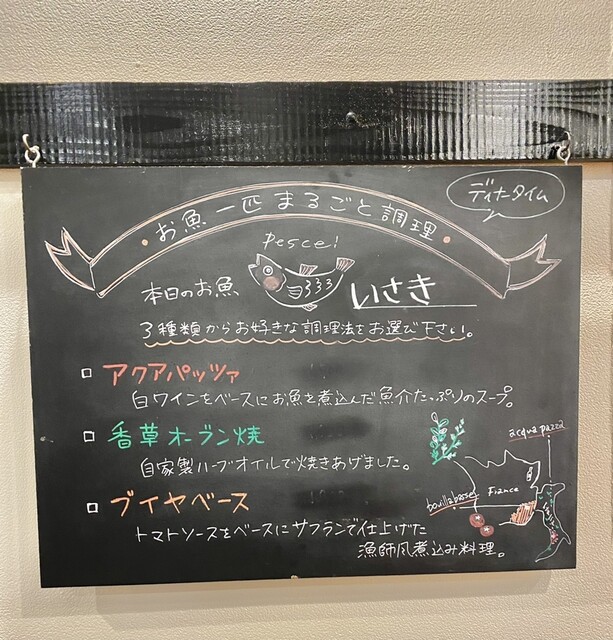 ディナータイム
・お魚一匹まるごと調理・
Pesce!
本日のお魚 いさき
3種類からお好きな調理法をお選び下さい。
□ アクアパッツァ
白ワインをベースにお魚を煮込んだ魚介たっぷりのスープ。
□ 香草オーブン焼
自家製ハーブオイルで焼きあげました。
□ ブイヤベース
トマトソースをベースにサフランで仕上げた
漁師風煮込み料理。
acqua pazza
France
bouillabasse